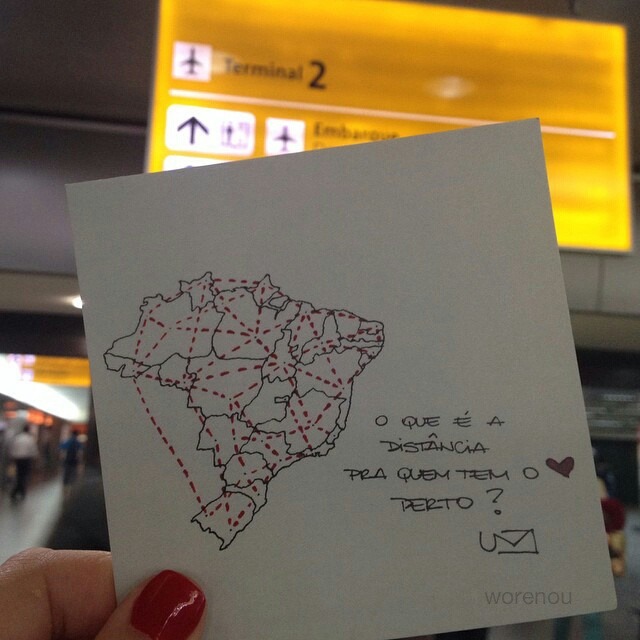 Terminal 2
Embarque
O QUE É A
DISTÂNCIA
PRA QUEM TEM O
PERTO?
U
worenou